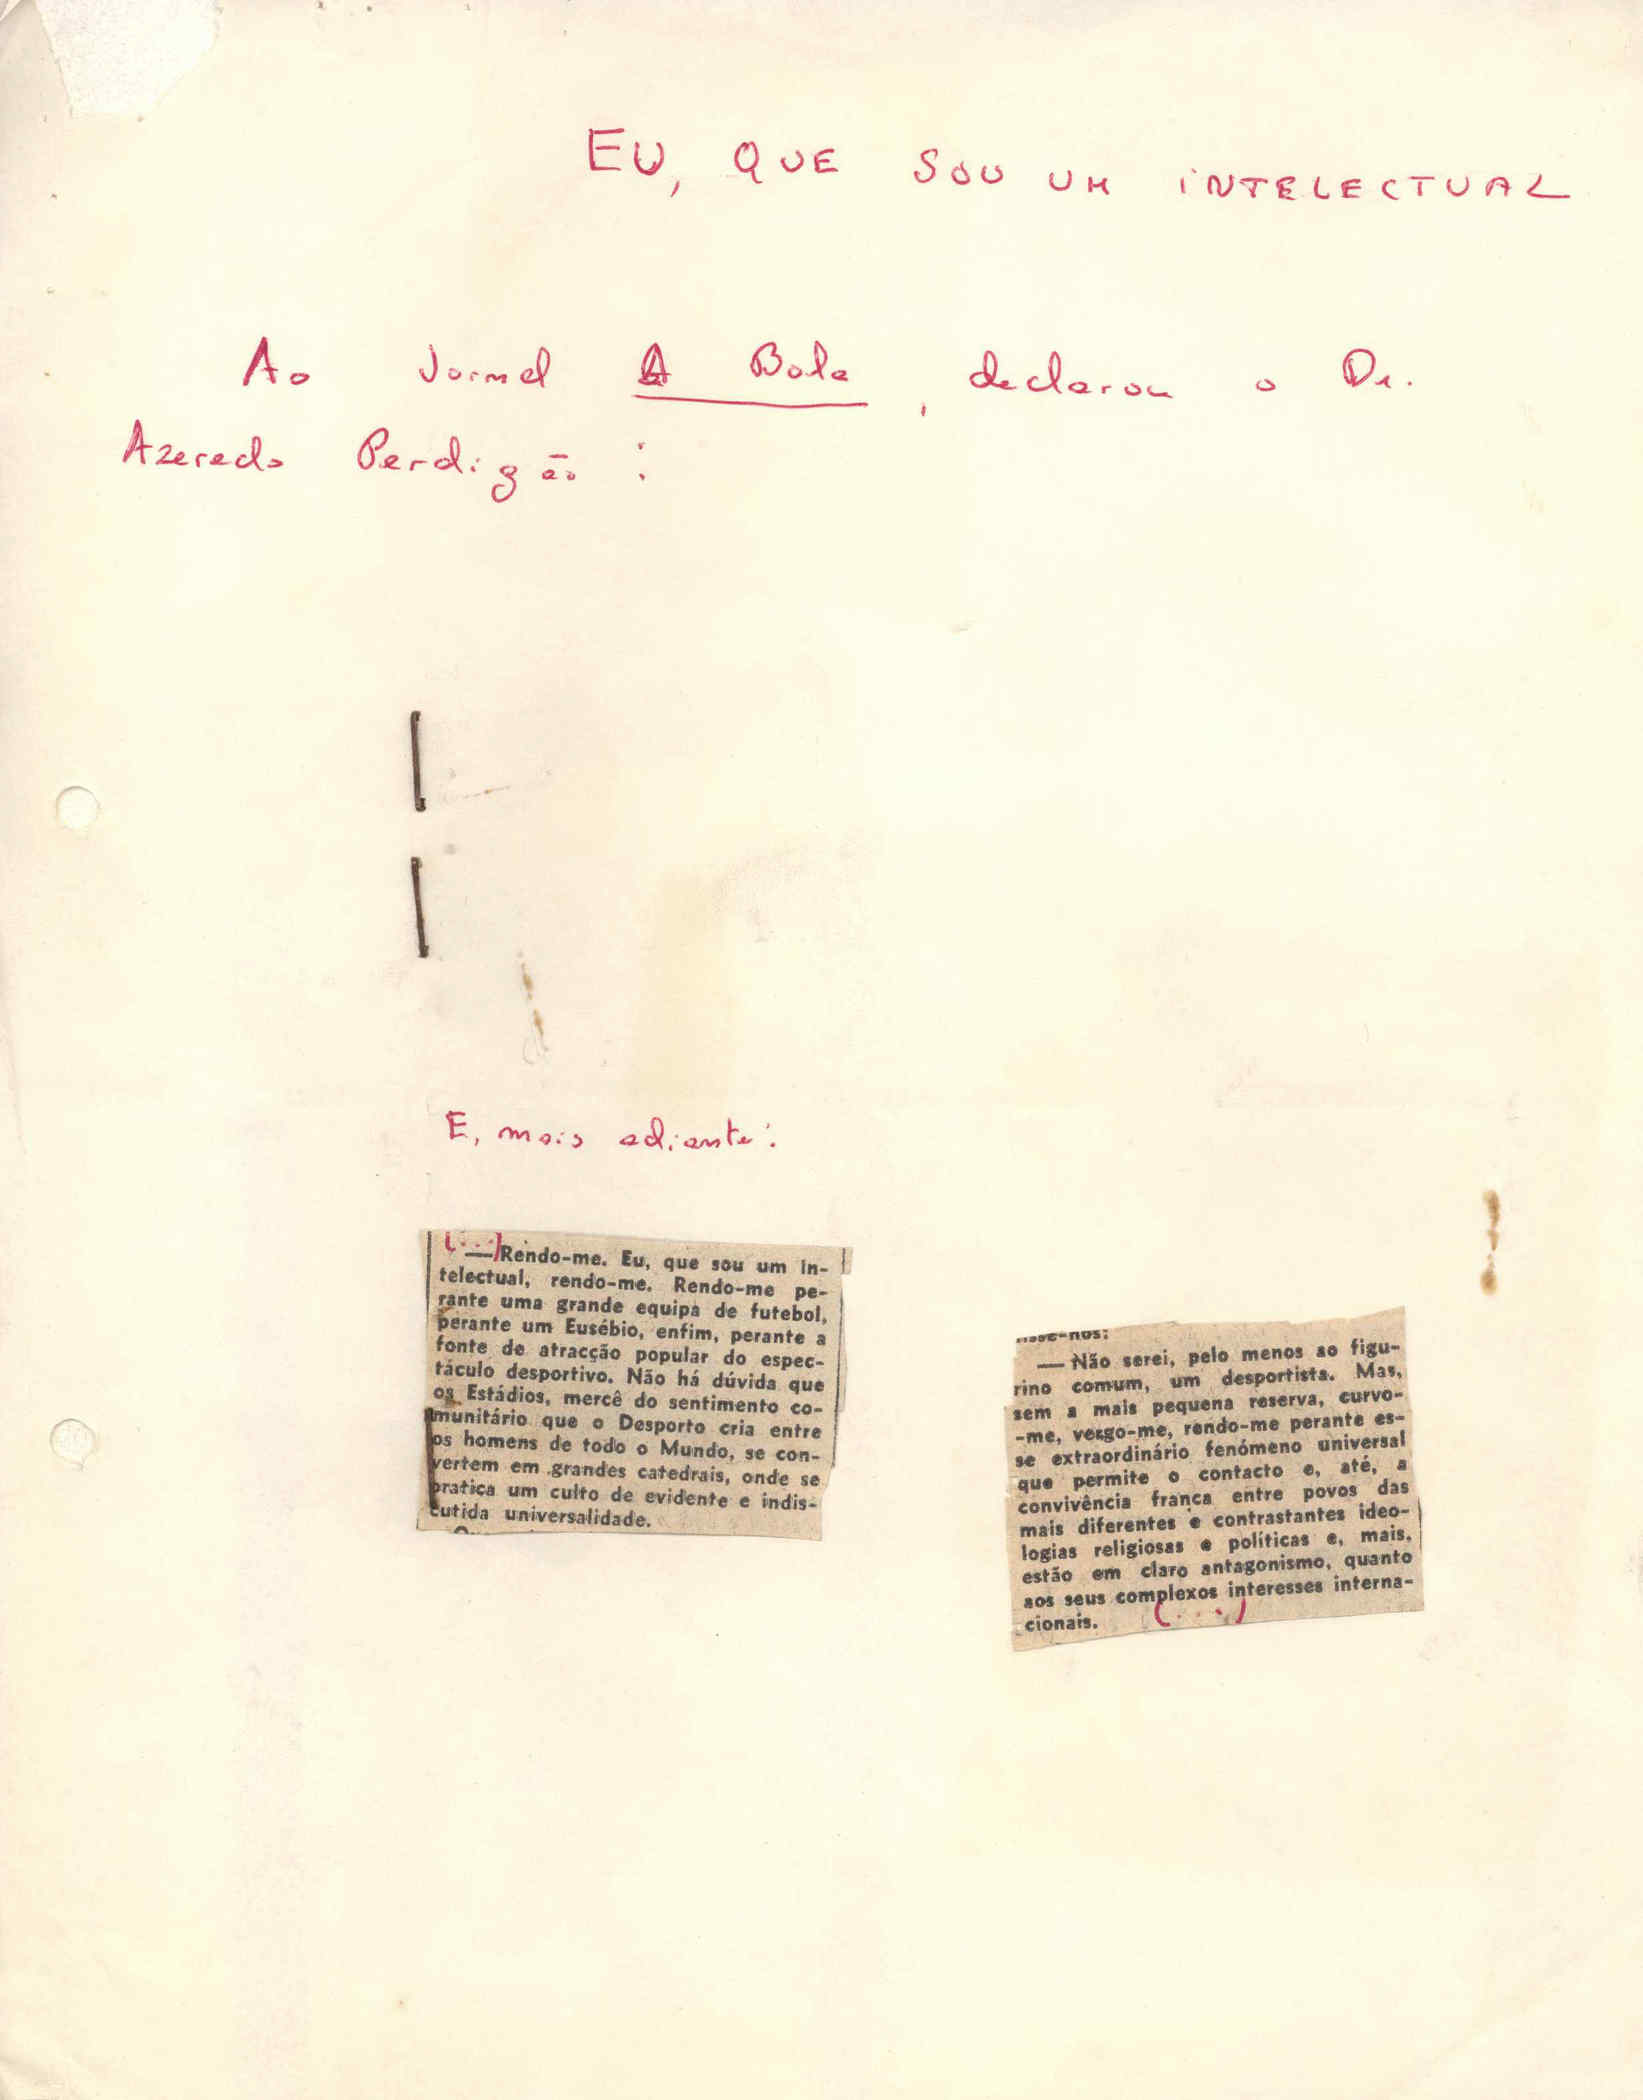 EU, QUE SOU UM INTELECTUAL
Ao Jornal A Bola, declarou o Dr.
Azeredo Perdigão:
E, mais adiante:
(...)
— Rendo-me. Eu, que sou um in-
telectual, rendo-me. Rendo-me pe-
rante uma grande equipa de futebol,
perante um Eusébio, enfim, perante a
fonte de atracção popular do espec-
táculo desportivo. Não há dúvida que
os Estádios, mercê do sentimento co-
munitário que o Desporto cria entre
os homens de todo o Mundo, se con-
vertem em grandes catedrais, onde se
pratica um culto de evidente e indis-
cutida universalidade.
— Não serei, pelo menos ao figu-
rino comum, um desportista. Mas,
sem a mais pequena reserva, curvo-
-me, vergo-me, rendo-me perante es-
se extraordinário fenómeno universal
que permite o contacto e, até, a
convivência franca entre povos das
mais diferentes e contrastantes ideo-
logias religiosas e políticas e, mais,
estão em claro antagonismo, quanto
aos seus complexos interesses interna-
cionais. (...)